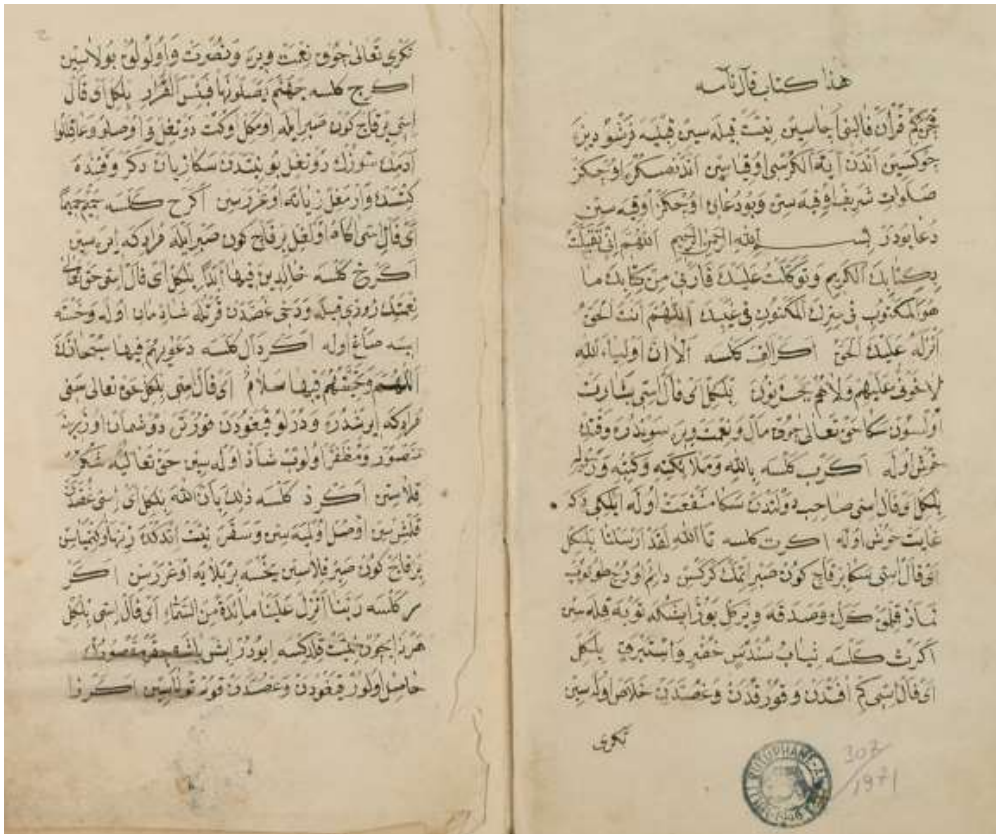 هذا كتاب فالنامه
قچن كم قران فالنى اچاسين نيت قيله سين قبله يه قرشو ديز
چوكسين اندن آية الكرسى اوقياسين اندنصكره اوچ كز
صلوات شريف اوقيه سن وبو دعاى اوچ كز اوقيه سن
دعا بودر بسم الله الرحمن الرحيم اللهم انى تفألت
بكتابك الكريم وتوكلت عليك فارنى من كتابك ما
هو المكتوب فى سرك المكنون فى غيبك اللهم انت الحق
انزله عليك الحق اكر الف كلسه الا ان اولياء الله
لا خوف عليهم ولا هم يحزنون بلكل اى فال اسى بشارت
اولسون سكا حق تعالى چوق مال ونعمت ويره سوينده وقتك
خوش اوله اكر ب كلسه بالله وملائكته وكتبه ورسله
بلكل اى فال اسى صاحب دولتدن سكا منفعت اوله ايلكى دكه
غايت خوش اوله اكر ت كلسه تالله لقد ارسلنا بلكل
اى فال اسى سكا بر قاچ كون صبر اتمك كركسن دايم اورج طوتوب
نماز قلمق كرك وصدقه ويركل يوز ايشكه توبه قله سن
اكر ث كلسه ثياب سندس خضر واستبرق بلكل
اى فال اسى كم افتدن وقورقدن وغصه‌دن خلاص اوله سين
تكرى
تكرى تعالى چوق نعمت ويره ونصرت واولولق بولاسين
اكر ج كلسه جهنم يصلونها فبئس القرار بلكل اى فال
اسى بر قاچ كون صبر ايله اومكل اوكت دوتغل اوصلو وعاقللو
آدمك سوزك دوتغل بو نيتدن سكا زيان دكر وقنده
كتسه‌ك وارمغل زيانه اوغررسن اكر ح كلسه حميم حميما
اى فال اسى اكاه اولغل بر قاچ كون صبر ايله مراد كه ايره سين
اكر خ كلسه خالدين فيها ابدا بلكل اى فال اسى حق تعالى
نعمتك روزى قيله ودخى غصه‌دن قرتله شادمان اوله وخسته
ايسه صاغ اوله اكر دال كلسه دعويهم فيها سبحانك
اللهم وتحيتهم فيها سلام اى فال اسى بلكل حق تعالى سنى
مرادكه ايرشدره ودرلو قيغودن قورتره دوشمان اوزرينه
منصور ومظفر اولوب شاد اوله سين حق تعاليه شكر
قلاسن اكر ذ كلسه ذلك بان الله بلكل اى اسى غصه‌دن
قلمش سن اوصل اوليه سن وسفره نيت اتدكسه زنهار كتمياسن
بر قاچ كون صبر قلاسين يخسه بر بلايه اوغررسن اكر
ر كلسه ربنا انزل علينا مائدة من السماء اى فال اسى بلكل
هر نه ايچون نيت قلدكسه ايودر ايش
حاصل اولور قيغودن وغصه‌دن قورتولاسين اكر ز
302
1971